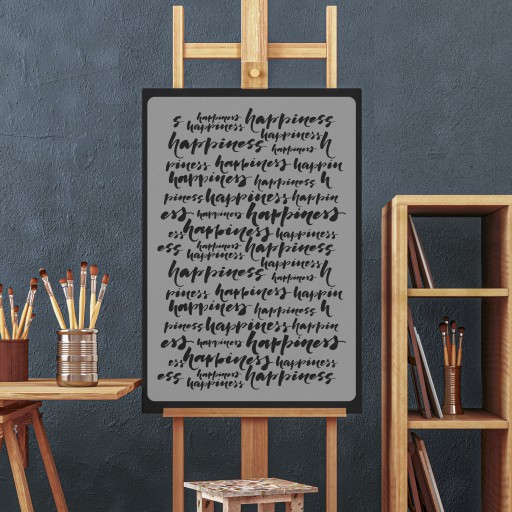 s happiness happiness
happiness happiness
happiness happiness h
piness happiness happin
happiness happiness h
piness happiness happin
ess happiness happiness
ess happiness happiness
ess happiness happiness
happiness happiness
happiness happiness h
piness happiness happin
happiness happiness h
piness happiness happin
ess happiness happiness
ess happiness happiness
ess happiness happiness
happiness